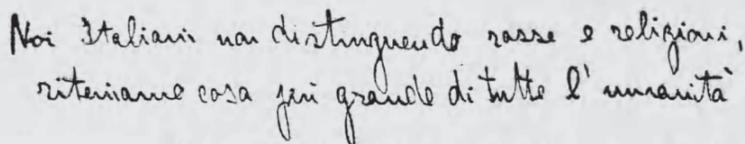 Noi Italiani non distinguendo rasse e religioni,
riteniamo cosa più grande di tutte l'umanità